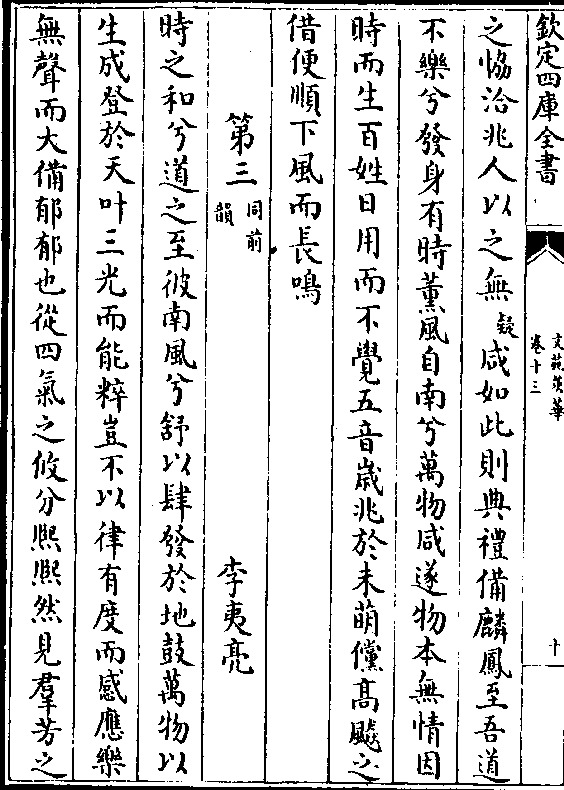 欽定四庫全書
文苑英華
卷十三
十
之恊洽兆人以之無疑咸如此則典禮備麟鳳至吾道
不樂兮發身有時薫風自南兮萬物咸遂物本無情因
時而生百姓日用而不覺五音嵗兆於未萌儻髙飈之
借便順下風而長鳴
第三同前韻
李夷亮
時之和兮道之至彼南風兮舒以肆發於地鼓萬物以
生成登於天叶三光而能粹豈不以律有度而感應樂
無聲而大備郁郁也從四氣之攸分熈熈然見羣芳之